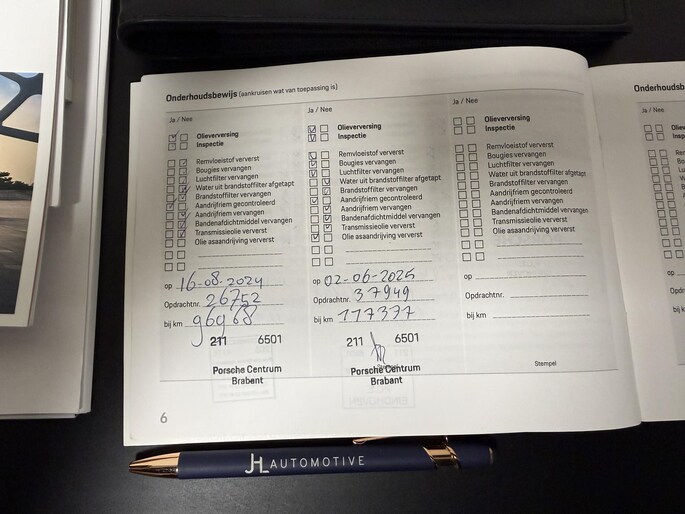 Onderhoudsbewijs (aankruisen wat van toepassing is)
Ja / Nee
Olieverversing
Inspectie
Remvloeistof ververst
Bougies vervangen
Luchtfilter vervangen
Water uit brandstoffilter afgetapt
Brandstoffilter vervangen
Aandrijfriem gecontroleerd
Aandrijfriem vervangen
Bandenafdichtmiddel vervangen
Transmissieolie ververst
Olie asaandrijving ververst
op 16-08-2024
Opdrachtnr. 26752
bij km 96968
211 6501
Porsche Centrum
Brabant
6
Ja / Nee
Olieverversing
Inspectie
Remvloeistof ververst
Bougies vervangen
Luchtfilter vervangen
Water uit brandstoffilter afgetapt
Brandstoffilter vervangen
Aandrijfriem gecontroleerd
Aandrijfriem vervangen
Bandenafdichtmiddel vervangen
Transmissieolie ververst
Olie asaandrijving ververst
op 02-06-2025
Opdrachtnr. 37949
bij km 117377
211 6501
Porsche Centrum
Brabant
Ja / Nee
Olieverversing
Inspectie
Remvloeistof ververst
Bougies vervangen
Luchtfilter vervangen
Water uit brandstoffilter afgetapt
Brandstoffilter vervangen
Aandrijfriem gecontroleerd
Aandrijfriem vervangen
Bandenafdichtmiddel vervangen
Transmissieolie ververst
Olie asaandrijving ververst
op
Opdrachtnr.
bij km
Stempel
Onderhoudsb
Ja / Nee
Oliev
Inspe
Remv
Boug
Luch
Wate
Bran
Aand
Aand
Band
Tran
Olie
op
Opdra
bij km
JHL AUTOMOTIVE